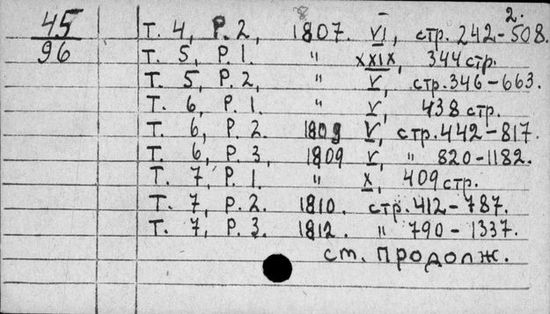 2.
45
96
Т. 4, Р. 2, 1807. VI, стр. 242-508.
Т. 5, Р. 1. " XXIX, 344 стр.
Т. 5, Р. 2, " V, стр. 346-663.
Т. 6, Р. 1. " V, 438 стр.
Т. 6, Р. 2. 1809 V, стр. 442-817.
Т. 6, Р. 3, 1809 V, " 820-1182.
Т. 7, Р. 1. " X, 409 стр.
Т. 7, Р. 2. 1810. стр. 412-787.
Т. 7, Р. 3. 1812. " 790-1337.
см. продолж.